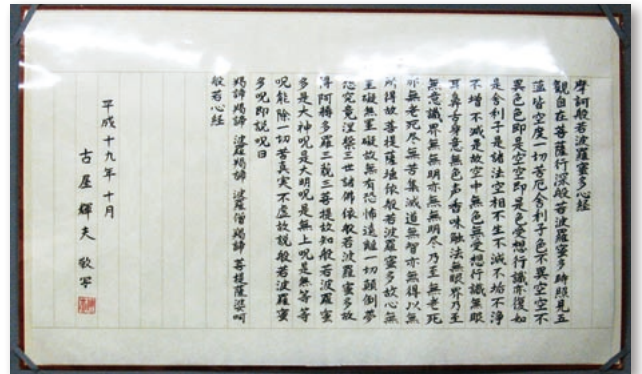 摩訶般若波羅蜜多心経
観自在菩薩行深般若波羅蜜多時照見五
蘊皆空度一切苦厄舎利子色不異空空不
異色色即是空空即是色受想行識亦復如
是舎利子是諸法空相不生不滅不垢不浄
不増不減是故空中無色無受想行識無眼
耳鼻舌身意無色声香味触法無眼界乃至
無意識界無無明亦無無明尽乃至無老死
亦無老死尽無苦集滅道無智亦無得以無
所得故菩提薩埵依般若波羅蜜多故心無
罣礙無罣礙故無有恐怖遠離一切顛倒夢
想究竟涅槃三世諸佛依般若波羅蜜多故
得阿耨多羅三藐三菩提故知般若波羅蜜
多是大神呪是大明呪是無上呪是無等等
呪能除一切苦真実不虚故説般若波羅蜜
多呪即説呪曰
羯諦羯諦 波羅羯諦 波羅僧羯諦 菩提薩婆呵
般若心経
平成十九年十月
古屋輝夫 敬写